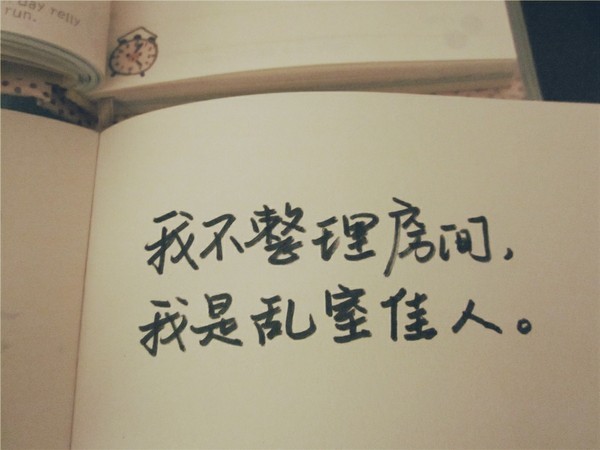 day relly
run.
我不整理房间，
我是乱室佳人。